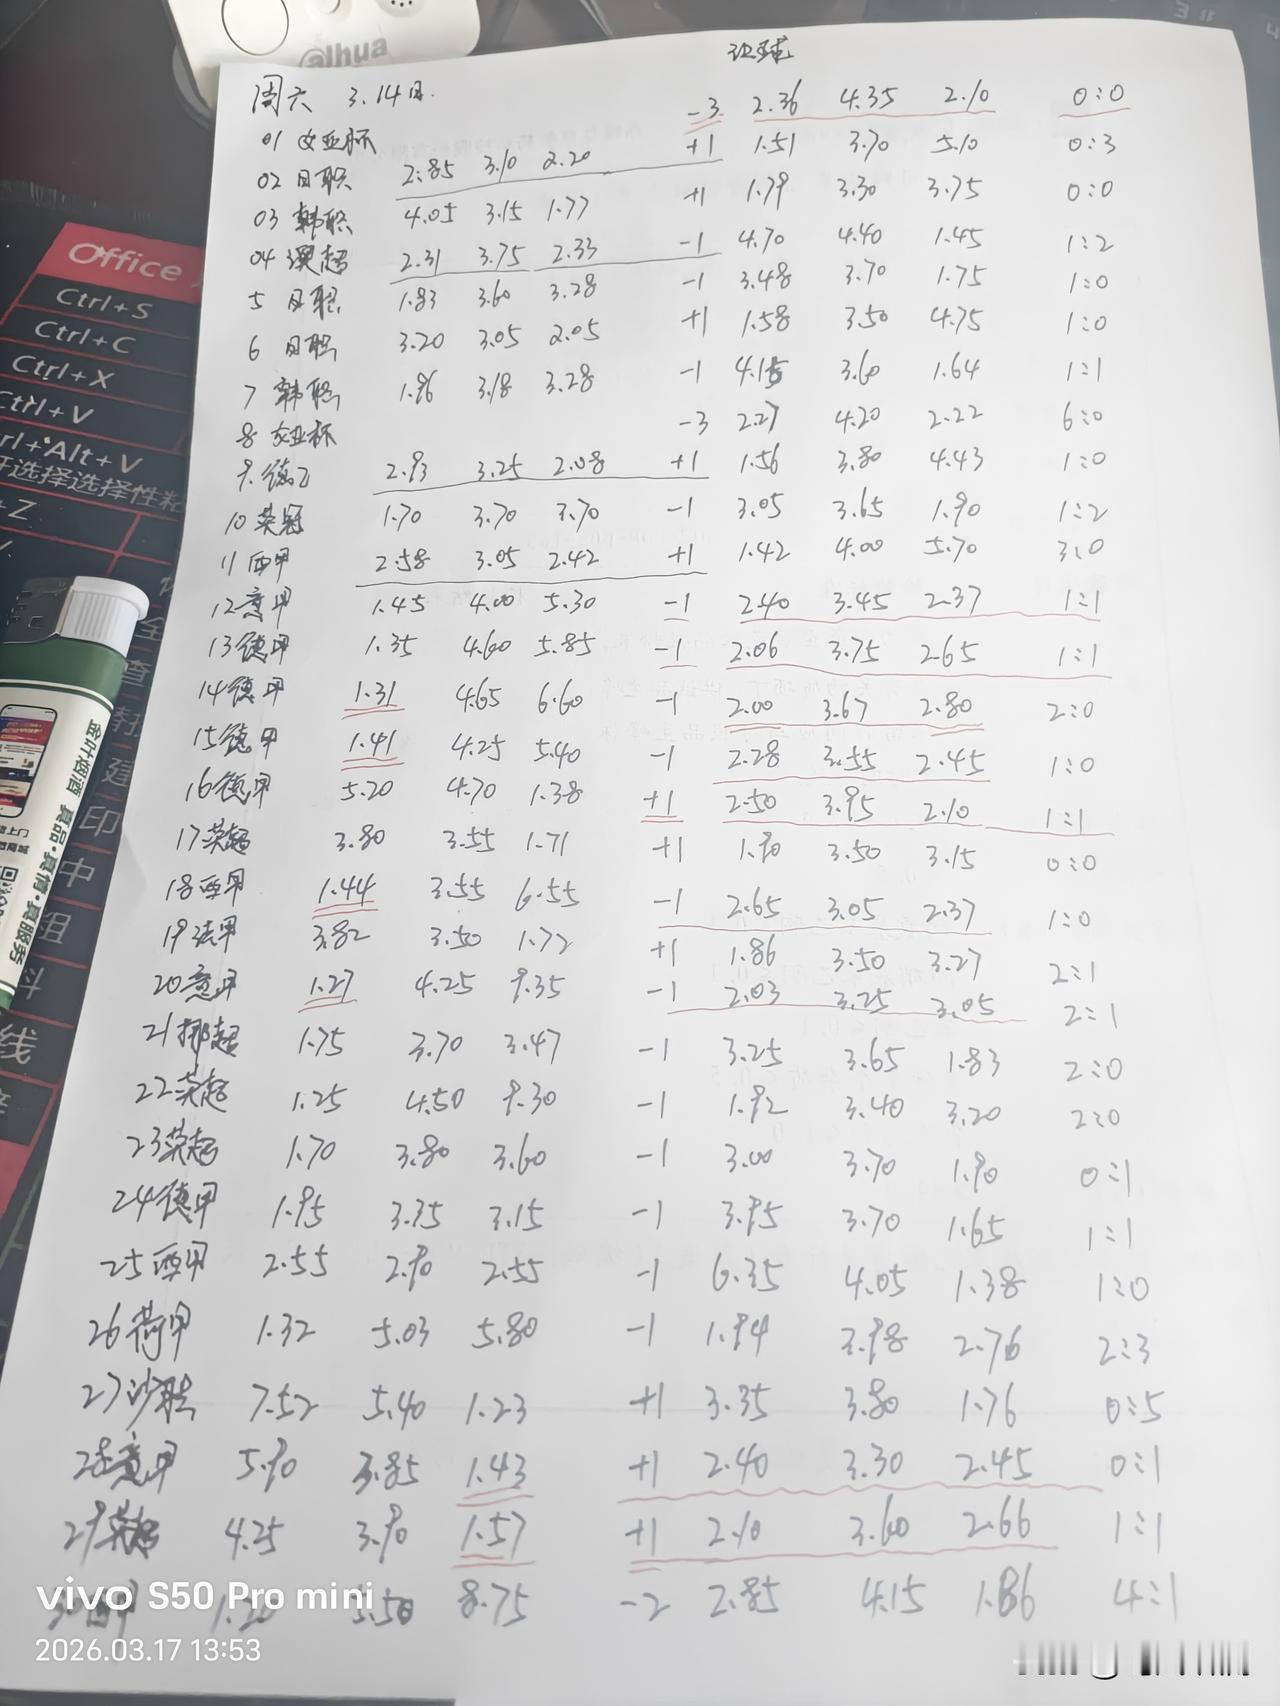 alhua
让球
周六 3.14日.
-3 2.36 4.35 2.10 0:0
01 女亚杯
+1 1.51 3.70 5.10 0:3
02 日职 2.85 3.10 2.20
+1 1.79 3.30 3.75 0:0
03 韩职 4.05 3.15 1.77
-1 4.70 4.40 1.45 1:2
04 澳超 2.31 3.75 2.33
-1 3.48 3.70 1.75 1:0
5 日职 1.83 3.60 3.28
+1 1.58 3.50 4.75 1:0
6 日职 3.20 3.05 2.05
-1 4.15 3.60 1.64 1:1
7 韩职 1.86 3.18 3.28
-3 2.27 4.20 2.22 6:0
8 女亚杯
9.德乙 2.93 3.25 2.08 +1 1.56 3.80 4.43 1:0
10 英冠 1.70 3.70 3.70 -1 3.05 3.65 1.90 1:2
11 西甲 2.58 3.05 2.42 +1 1.42 4.00 5.70 3:0
12 意甲 1.45 4.00 5.30 -1 2.40 3.45 2.37 1:1
13 德甲 1.35 4.60 5.85 -1 2.06 3.75 2.65 1:1
14 德甲 1.31 4.65 6.60 -1 2.00 3.67 2.80 2:0
15 德甲 1.41 4.25 5.40 -1 2.28 3.55 2.45 1:0
16 德甲 5.20 4.70 1.38 +1 2.50 3.95 2.10 1:1
17 英超 3.80 3.55 1.71 +1 1.90 3.50 3.15 0:0
18 西甲 1.44 3.55 6.55 -1 2.65 3.05 2.37 1:0
19 法甲 3.82 3.50 1.72 +1 1.86 3.50 3.27 2:1
20 意甲 1.27 4.25 9.35 -1 2.03 3.25 3.05 2:1
21 挪超 1.75 3.70 3.47 -1 3.25 3.65 1.83 2:0
22 英超 1.25 4.50 9.30 -1 1.92 3.40 3.20 2:0
23 英超 1.70 3.80 3.60 -1 3.00 3.70 1.90 0:1
24 德甲 1.95 3.35 3.15 -1 3.95 3.70 1.65 1:1
25 西甲 2.55 2.90 2.55 -1 6.35 4.05 1.38 1:0
26 荷甲 1.32 5.03 5.80 -1 1.94 3.98 2.76 2:3
27 沙职 7.52 5.40 1.23 +1 3.35 3.80 1.76 0:5
28 意甲 5.90 3.85 1.43 +1 2.40 3.30 2.45 0:1
29 英超 4.25 3.90 1.57 +1 2.10 3.60 2.66 1:1
30 西甲 1.20 5.50 8.75 -2 2.85 4.15 1.86 4:1
Office
Ctrl+S
Ctrl+C
Ctrl+X
Ctrl+V
Ctrl+Alt+V
开选择选择性粘
+Z
金叶烟酒 真品·真情·真服务
vivo S50 Pro mini
2026.03.17 13:53